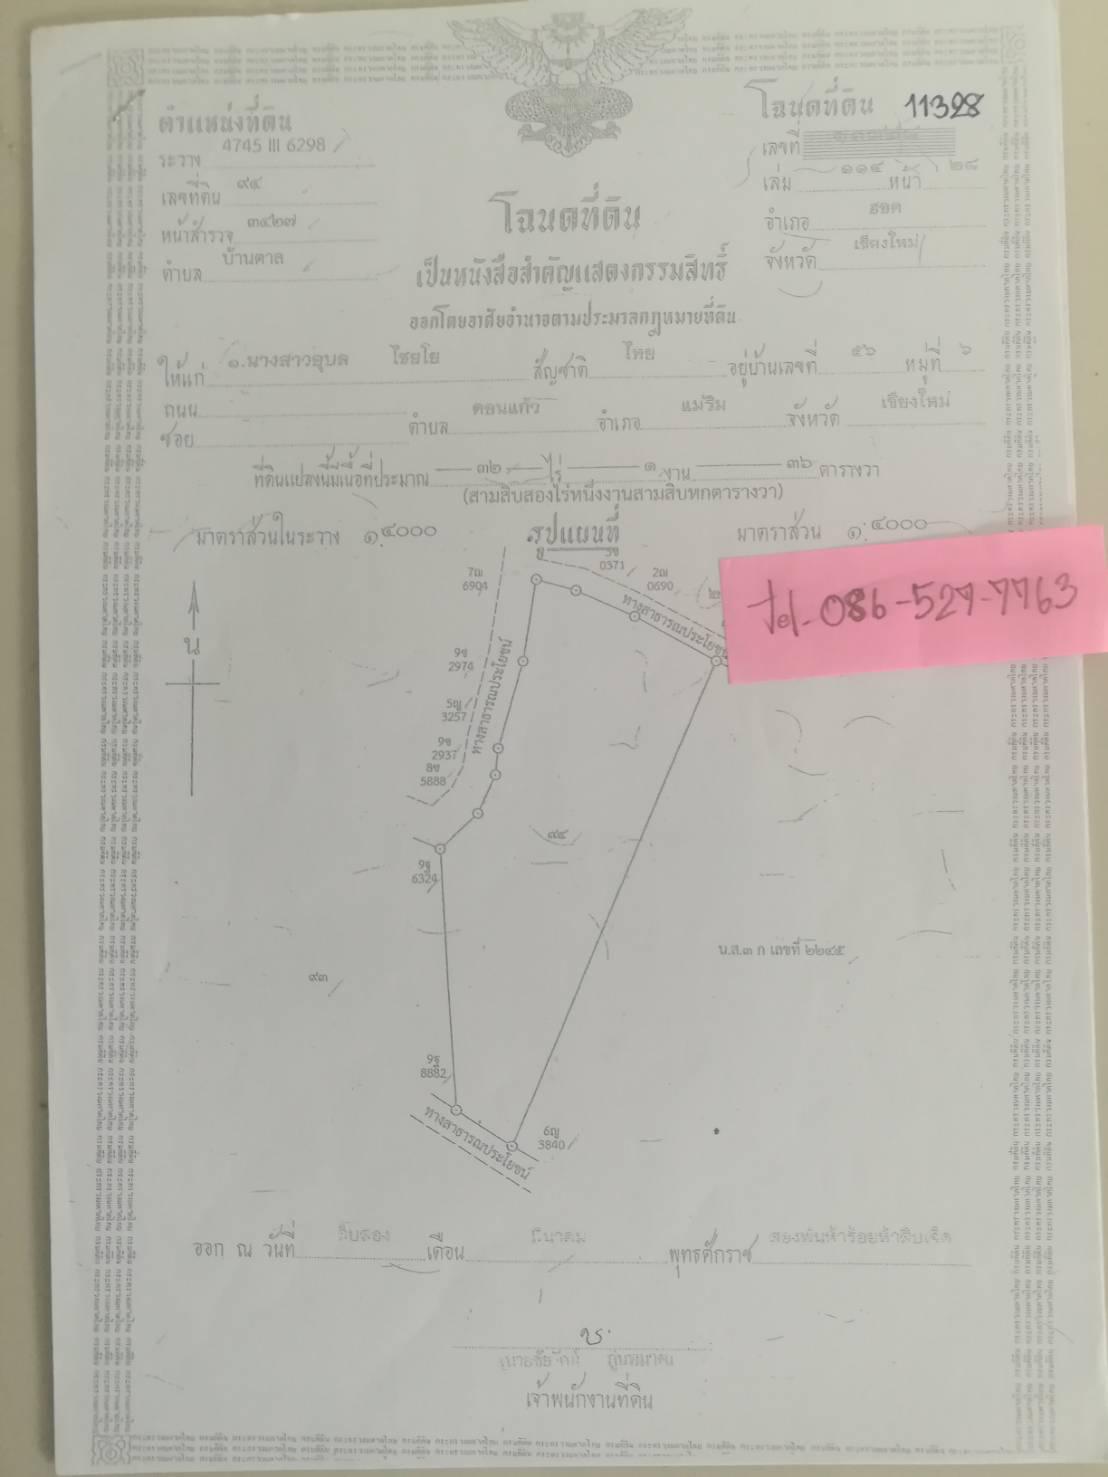 ตำแหน่งที่ดิน
ระวาง 4745 III 6298
เลขที่ดิน ๙๔
หน้าสำรวจ ๓๔๒๗
ตำบล บ้านตาล
โฉนดที่ดิน 11328
เลขที่
เล่ม ๑๑๔ หน้า ๒๘
อำเภอ ฮอด
จังหวัด เชียงใหม่
โฉนดที่ดิน
เป็นหนังสือสำคัญแสดงกรรมสิทธิ์
ออกโดยอาศัยอำนาจตามประมวลกฎหมายที่ดิน
ให้แก่ ๑.นางสาวอุบล ไชยโย สัญชาติ ไทย อยู่บ้านเลขที่ ๕๖ หมู่ที่ ๖
ถนน
ซอย ตำบล ดอนแก้ว อำเภอ แม่ริม จังหวัด เชียงใหม่
ที่ดินแปลงนี้มีเนื้อที่ประมาณ ๓๒ ไร่ ๑ งาน ๓๖ ตารางวา
(สามสิบสองไร่หนึ่งงานสามสิบหกตารางวา)
มาตราส่วนในระวาง ๑:๔๐๐๐ รูปแผนที่ มาตราส่วน ๑:๔๐๐๐
Tel. 086-527-7763
น
7ญ
6904
0371
2ญ
0690
ทางสาธารณประโยชน์
9ช
2974
5ญ
3257
9ช
2937
8ช
5888
ทางสาธารณประโยชน์
๙๔
9ฐ
6324
น.ส.๓ ก เลขที่ ๒๒๔๕
๙๓
9ฐ
8882
6ญ
3840
ทางสาธารณประโยชน์
ออก ณ วันที่ สิบสอง เดือน มีนาคม พุทธศักราช สองพันห้าร้อยห้าสิบเจ็ด
เจ้าพนักงานที่ดิน